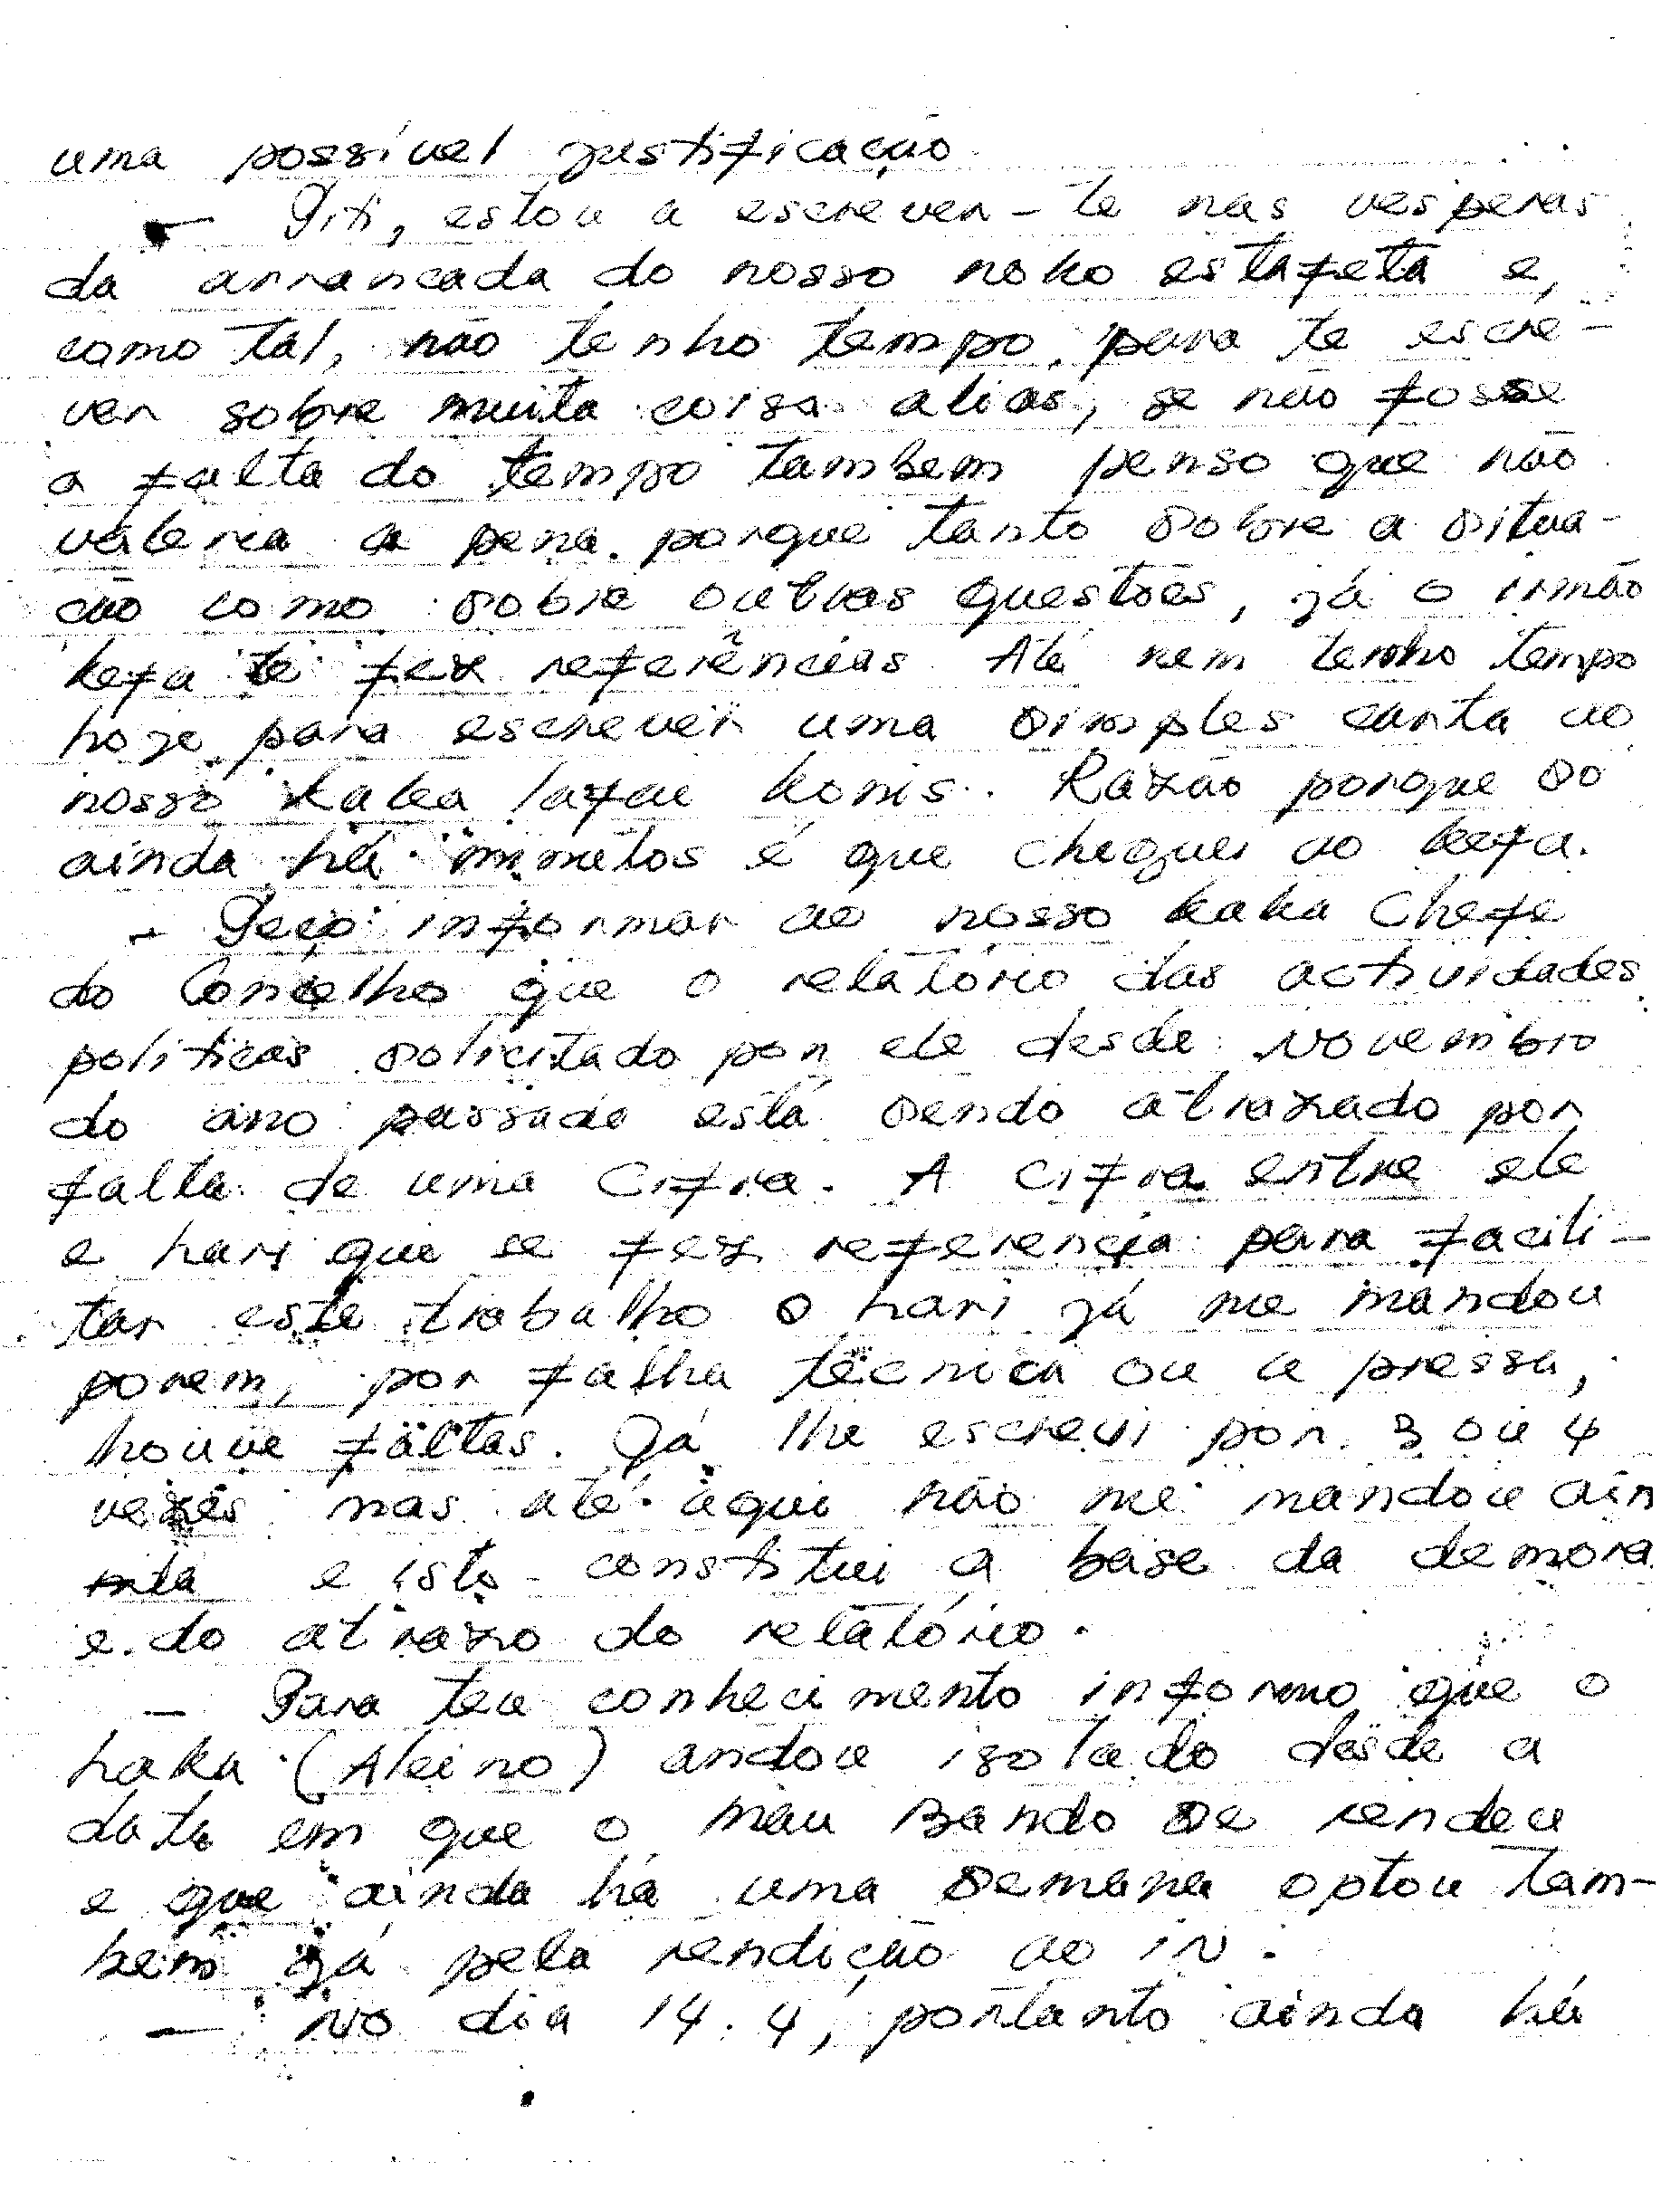 uma possível justificação
— Piti, estou a escrever-te nas vesperas
da arrancada do nosso noko estafeta e,
como tal, não tenho tempo para te escre-
ver sobre muita coisa alias, se não fosse
a falta do tempo tambem penso que não
valeria a pena porque tanto sobre a situa-
cão como sobre outras questões, já o irmão
kefa te fez referências. Até nem tenho tempo
hoje para escrever uma simples carta ao
nosso kaka lafae konis. Razão porque só
ainda há minutos é que cheguei ao kefa.
— Peço informar ao nosso kaka Chefe
do Concelho que o relatório das actividades
politicas solicitado por ele desde Novembro
do ano passado está sendo atrazado por
falta de uma Cifra. A cifra entre ele
e hari que se fez referencia para facili-
tar este trabalho o hari já me mandou
porem, por falha técnica ou a pressa,
houve faltas. Já lhe escrevi por 3 ou 4
vezes mas até aqui não me mandou ain
da e isto constitui a base da demora
e do atrazo do relatório.
— Para teu conhecimento informo que o
haka (Aleino) andou isolado desde a
data em que o Mau Bando se rendeu
e que ainda há uma semana optou tam-
bem já pela rendicão ao iN.
— No dia 14.4, portanto ainda há